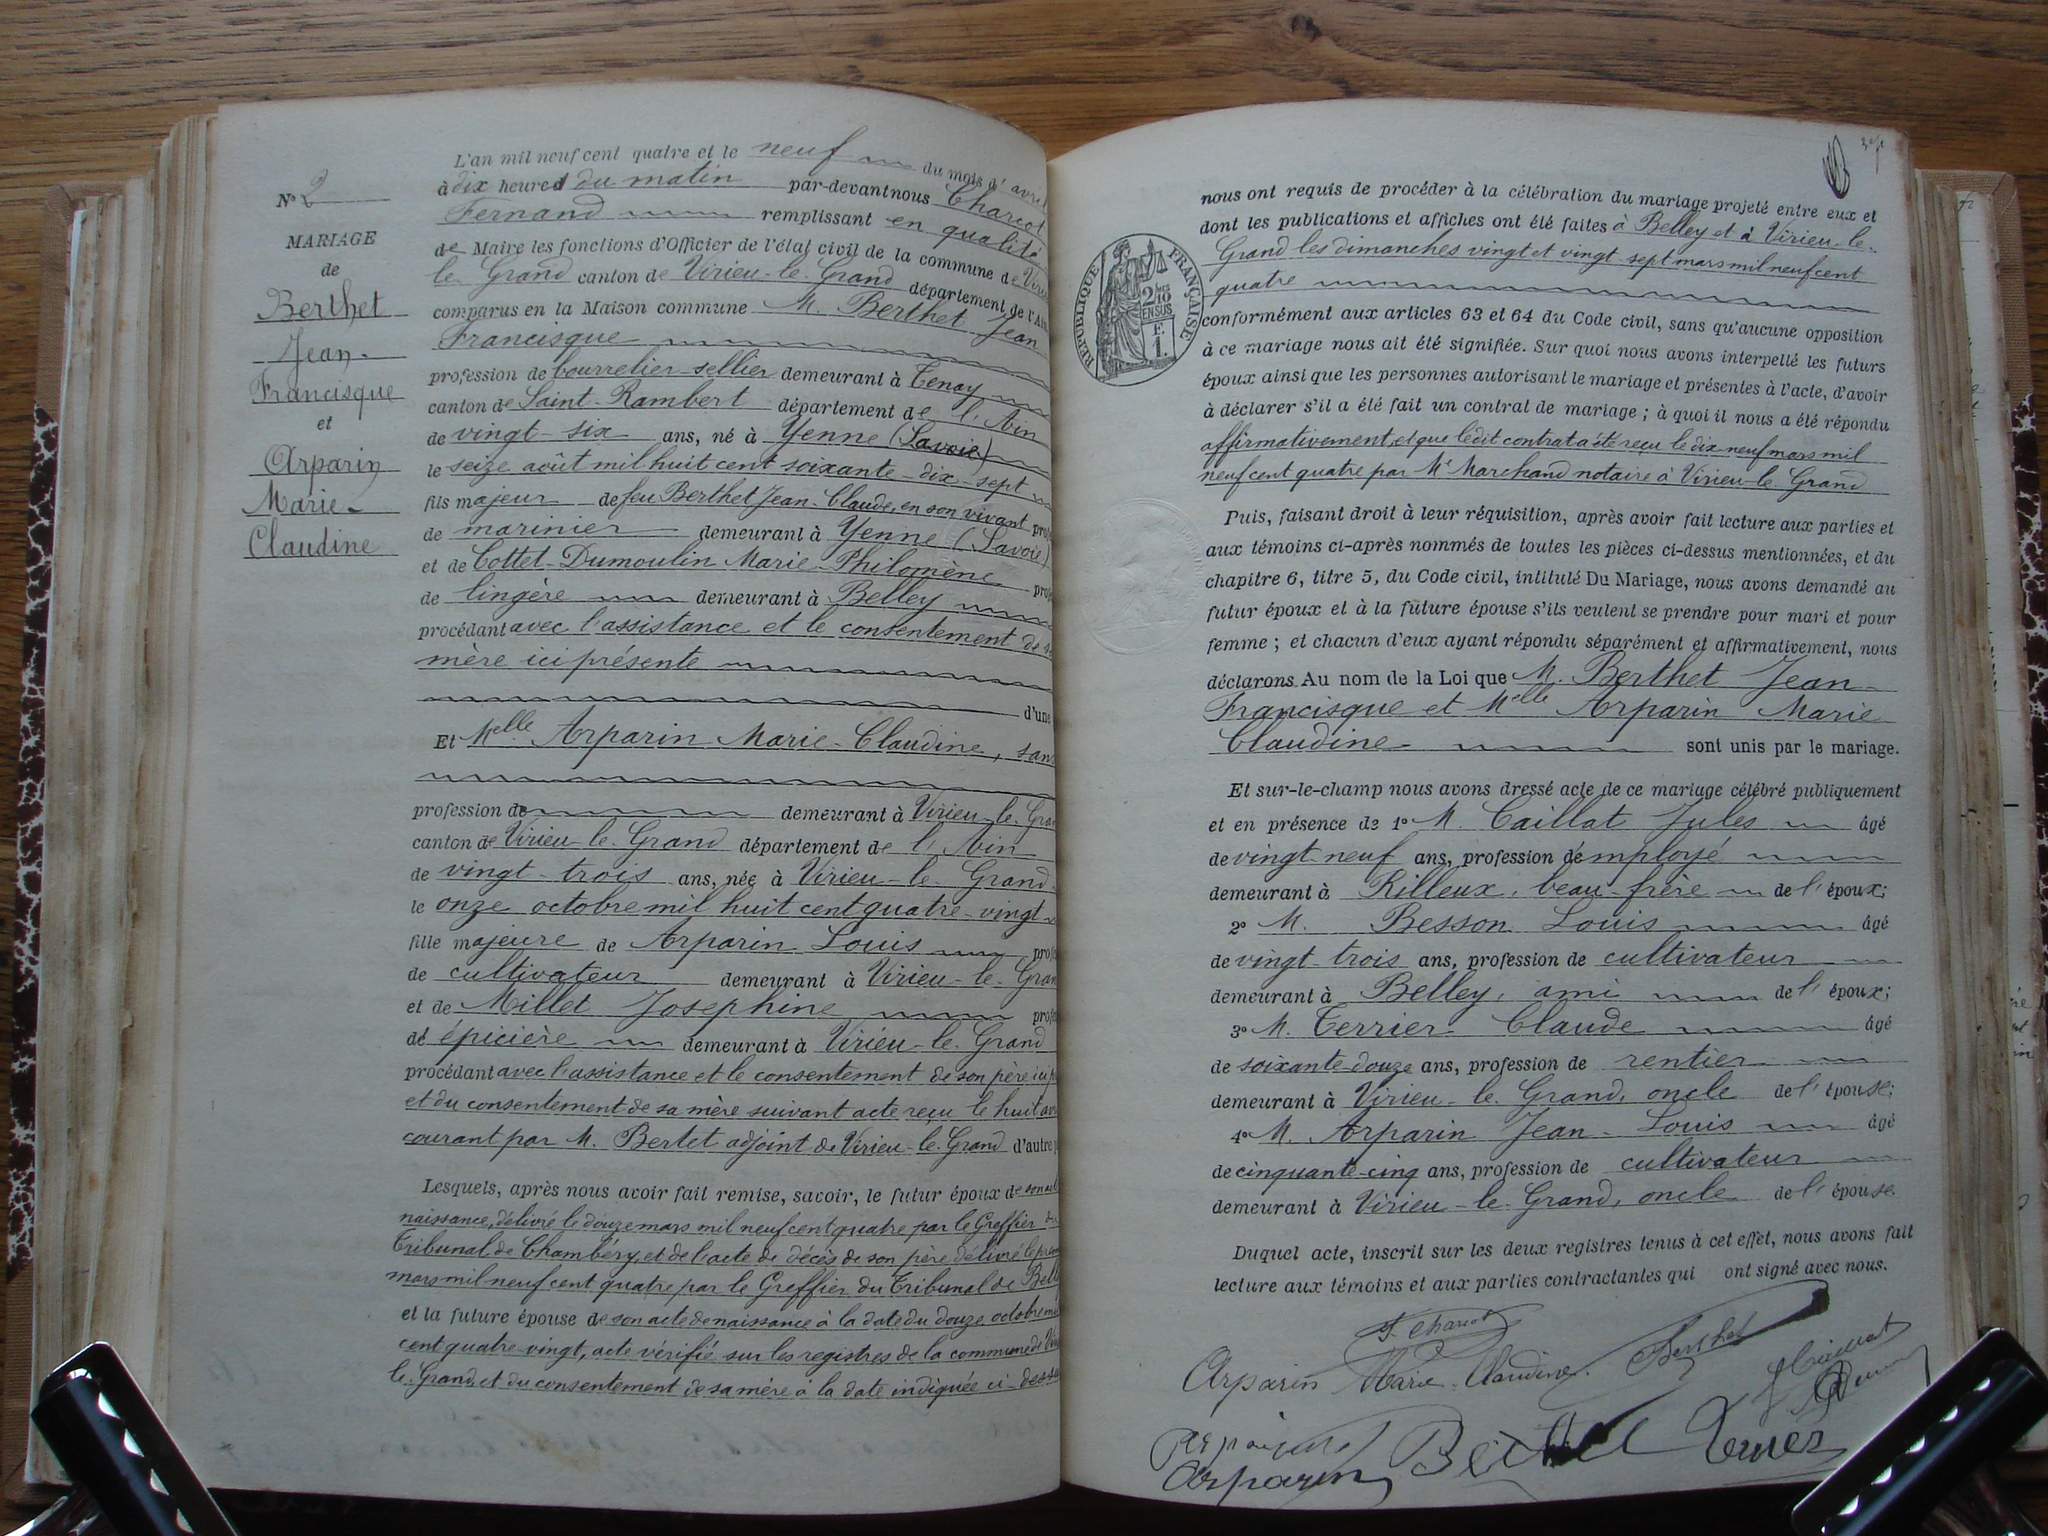 N° 2
MARIAGE
de
Berthet
Jean
Francisque
et
Arparin
Marie
Claudine
L'an mil neuf cent quatre et le neuf du mois d'avril
à dix heures du matin par-devant nous Charcot
Fernand remplissant en qualité
de Maire les fonctions d'Officier de l'état civil de la commune de Virieu
le Grand canton de Virieu-le-Grand département de l'Ain
comparus en la Maison commune M. Berthet Jean
Francisque
profession de bourrelier-sellier demeurant à Tenay
canton de Saint-Rambert département de l'Ain
de vingt-six ans, né à Yenne (Savoie)
le seize août mil huit cent soixante-dix-sept
fils majeur de feu Berthet Jean-Claude, en son vivant
de marinier demeurant à Yenne (Savoie)
et de Cottet-Dumoulin Marie-Philomène
de lingère demeurant à Belley
procédant avec l'assistance et le consentement de sa
mère ici présente
d'une
Et Melle Arparin Marie-Claudine, sans
profession de demeurant à Virieu-le-Grand
canton de Virieu-le-Grand département de l'Ain
de vingt-trois ans, née à Virieu-le-Grand
le onze octobre mil huit cent quatre-vingt
fille majeure de Arparin Louis
de cultivateur demeurant à Virieu-le-Grand
et de Millet Josephine
de épicière demeurant à Virieu-le-Grand
procédant avec l'assistance et le consentement de son père ici
et du consentement de sa mère suivant acte reçu le huit avril
courant par M. Bertet adjoint de Virieu-le-Grand d'autre
Lesquels, après nous avoir fait remise, savoir, le futur époux de son
naissance, délivré le douze mars mil neuf cent quatre par le Greffier du
Tribunal de Chambéry, et de l'acte de décès de son père délivré le
mars mil neuf cent quatre par le Greffier du Tribunal de Belley
et la future épouse de son acte de naissance à la date du douze octobre
cent quatre-vingt, acte vérifié sur les registres de la commune de Virieu
le-Grand, et du consentement de sa mère à la date indiquée ci-dessus
nous ont requis de procéder à la célébration du mariage projeté entre eux et
dont les publications et affiches ont été faites à Belley et à Virieu-le-
Grand les dimanches vingt et vingt-sept mars mil neuf cent
quatre
RÉPUBLIQUE FRANÇAISE
2/10 EN SUS
F.
1.
conformément aux articles 63 et 64 du Code civil, sans qu'aucune opposition
à ce mariage nous ait été signifiée. Sur quoi nous avons interpellé les futurs
époux ainsi que les personnes autorisant le mariage et présentes à l'acte, d'avoir
à déclarer s'il a été fait un contrat de mariage ; à quoi il nous a été répondu
affirmativement, et que ledit contrat a été reçu le dix neuf mars mil
neuf cent quatre par Me Marchand notaire à Virieu-le-Grand
Puis, faisant droit à leur réquisition, après avoir fait lecture aux parties et
aux témoins ci-après nommés de toutes les pièces ci-dessus mentionnées, et du
chapitre 6, titre 5, du Code civil, intitulé Du Mariage, nous avons demandé au
futur époux et à la future épouse s'ils veulent se prendre pour mari et pour
femme ; et chacun d'eux ayant répondu séparément et affirmativement, nous
déclarons Au nom de la Loi que M. Berthet Jean-
Francisque et Melle Arparin Marie
Claudine sont unis par le mariage.
Et sur-le-champ nous avons dressé acte de ce mariage célébré publiquement
et en présence de 1° M. Caillat Jules âgé
de vingt-neuf ans, profession d'employé
demeurant à Rilleux, beau-frère de l'époux;
2° M. Besson Louis âgé
de vingt-trois ans, profession de cultivateur
demeurant à Belley, ami de l'époux;
3° M. Terrier Claude âgé
de soixante-douze ans, profession de rentier
demeurant à Virieu-le-Grand, oncle de l'épouse;
4° M. Arparin Jean-Louis âgé
de cinquante-cinq ans, profession de cultivateur
demeurant à Virieu-le-Grand, oncle de l'épouse
Duquel acte, inscrit sur les deux registres tenus à cet effet, nous avons fait
lecture aux témoins et aux parties contractantes qui ont signé avec nous.
F. Charcot
Arparin Marie-Claudine. Berthet
J Caillat
Arparin Berthet Terrier